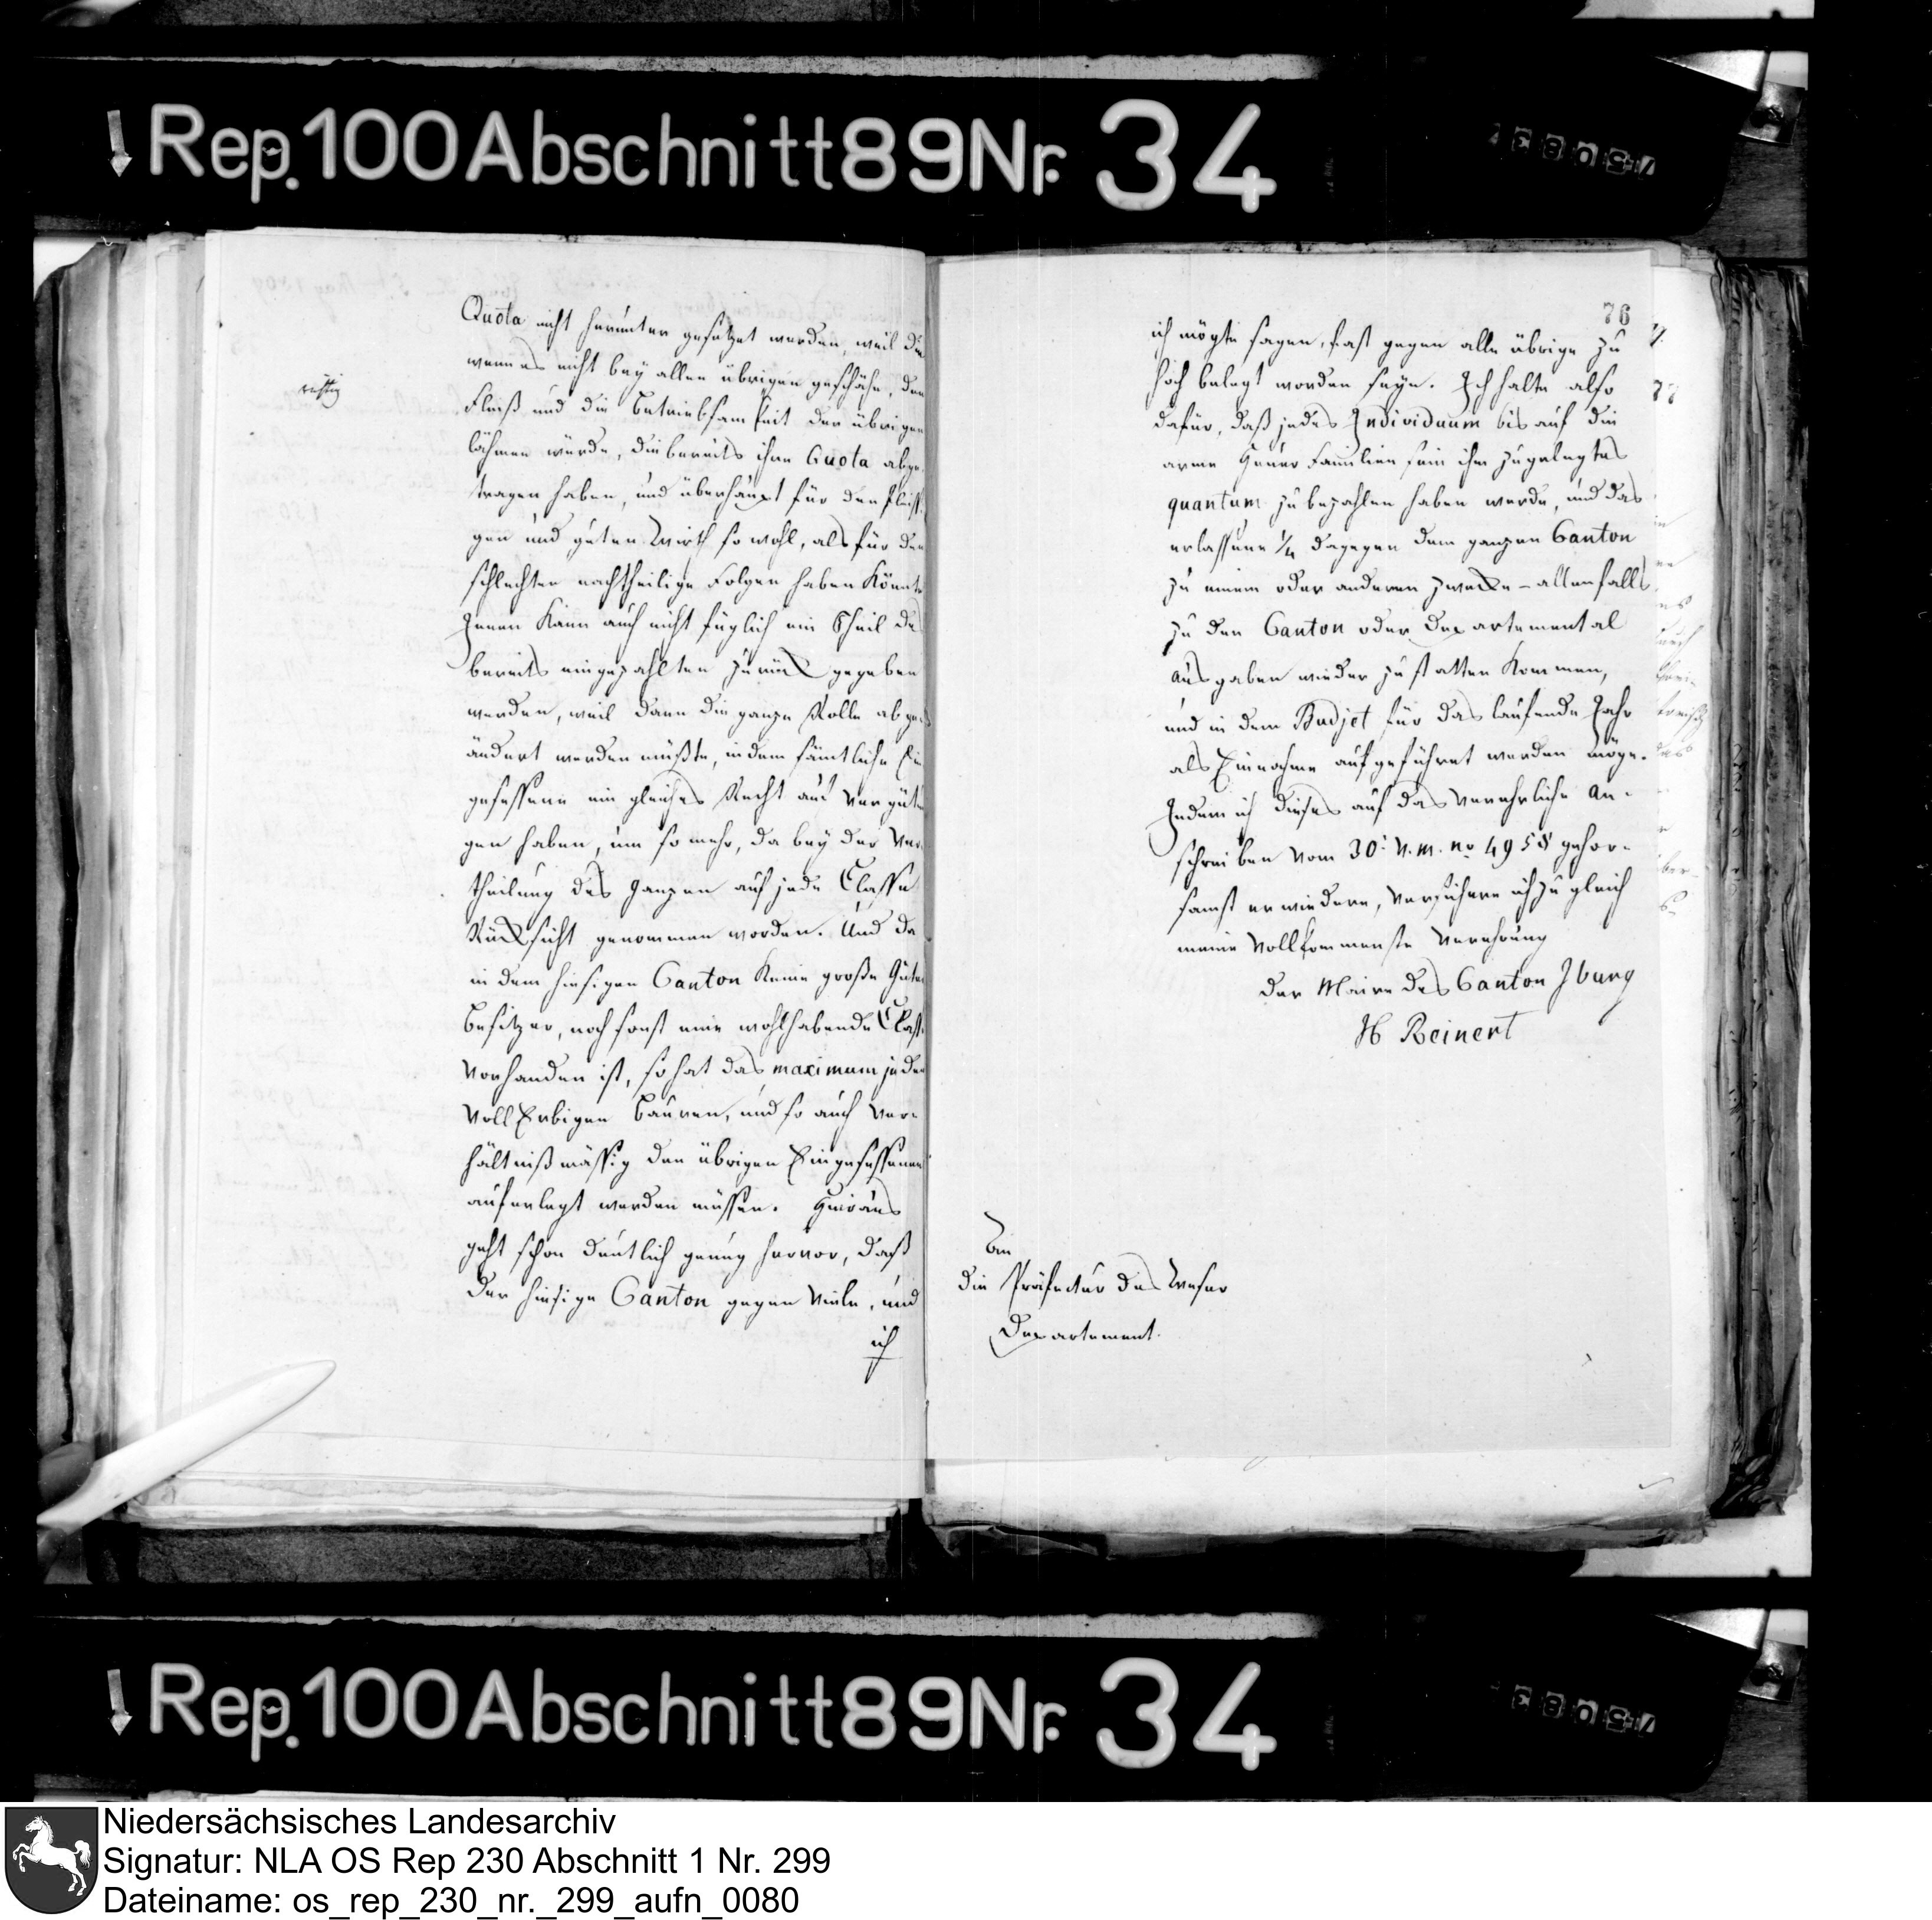 Rep. 100 Abschnitt 89 Nr. 34
Quota nicht herunter gesetzet werden, weil die
wenn es nicht bey allen übrigen geschähe, den
richtig
Fleiß und die Betriebsamkeit der übrigen
lähmen würde, die bereits ihre Quota abge-
tragen haben, und überhaupt für den fleissi-
gen und guten Wirth so wohl, als für den
schlechten nachtheilige Folgen haben könnte
Jenen kann auch nicht füglich ein Theil des
bereits eingezahlten zurück gegeben
werden, weil dann die ganze Rolle abge-
ändert werden müßte, indem sämtliche Ein
gesessene ein gleiches Recht auf Vergütun
gen haben, um so mehr, da bey der Ver-
theilung des Ganzen auf jede Classe
Rücksicht genommen worden. Und da
in dem hiesigen Canton keine große Güter
Besitzer, noch sonst eine wohlhabende Classe
vorhanden ist, so hat das maximum jeden
Voll Erbigen Bauren, und so auch ver-
hältnißmässig den übrigen Eingesessenen
auferlegt werden müssen. Hieraus
geht schon deutlich genug hervor, daß
der hiesige Canton gegen viele, und
ich
76
ich mögte sagen, fast gegen alle übrige zu
hoch belegt worden seye. Ich halte also
dafür, daß jedes Individuum bis auf die
arme Heuer Familien sein ihm zugelegtes
quantum zu bezahlen haben werde, und das
erlassene 1/4 dagegen dem ganzen Canton
zu einem oder anderen Zwecke - allenfalls
zu den Canton oder Departemental
Ausgaben wieder zu statten kommen,
und in dem Budjet für das laufende Jahr
als Einnahme aufgeführet werden möge.
Indem ich dieses auf das verehrliche An-
schreiben vom 30. v. m. no 4958 gehor-
samst erwiedere, versichere ich zu gleich
meine Vollkommenste Verehrung
Der Maire des Canton Iburg
H Reinert
An
die Präfectur des Weser
Departement.
Rep. 100 Abschnitt 89 Nr. 34
Niedersächsisches Landesarchiv
Signatur: NLA OS Rep 230 Abschnitt 1 Nr. 299
Dateiname: os_rep_230_nr._299_aufn_0080